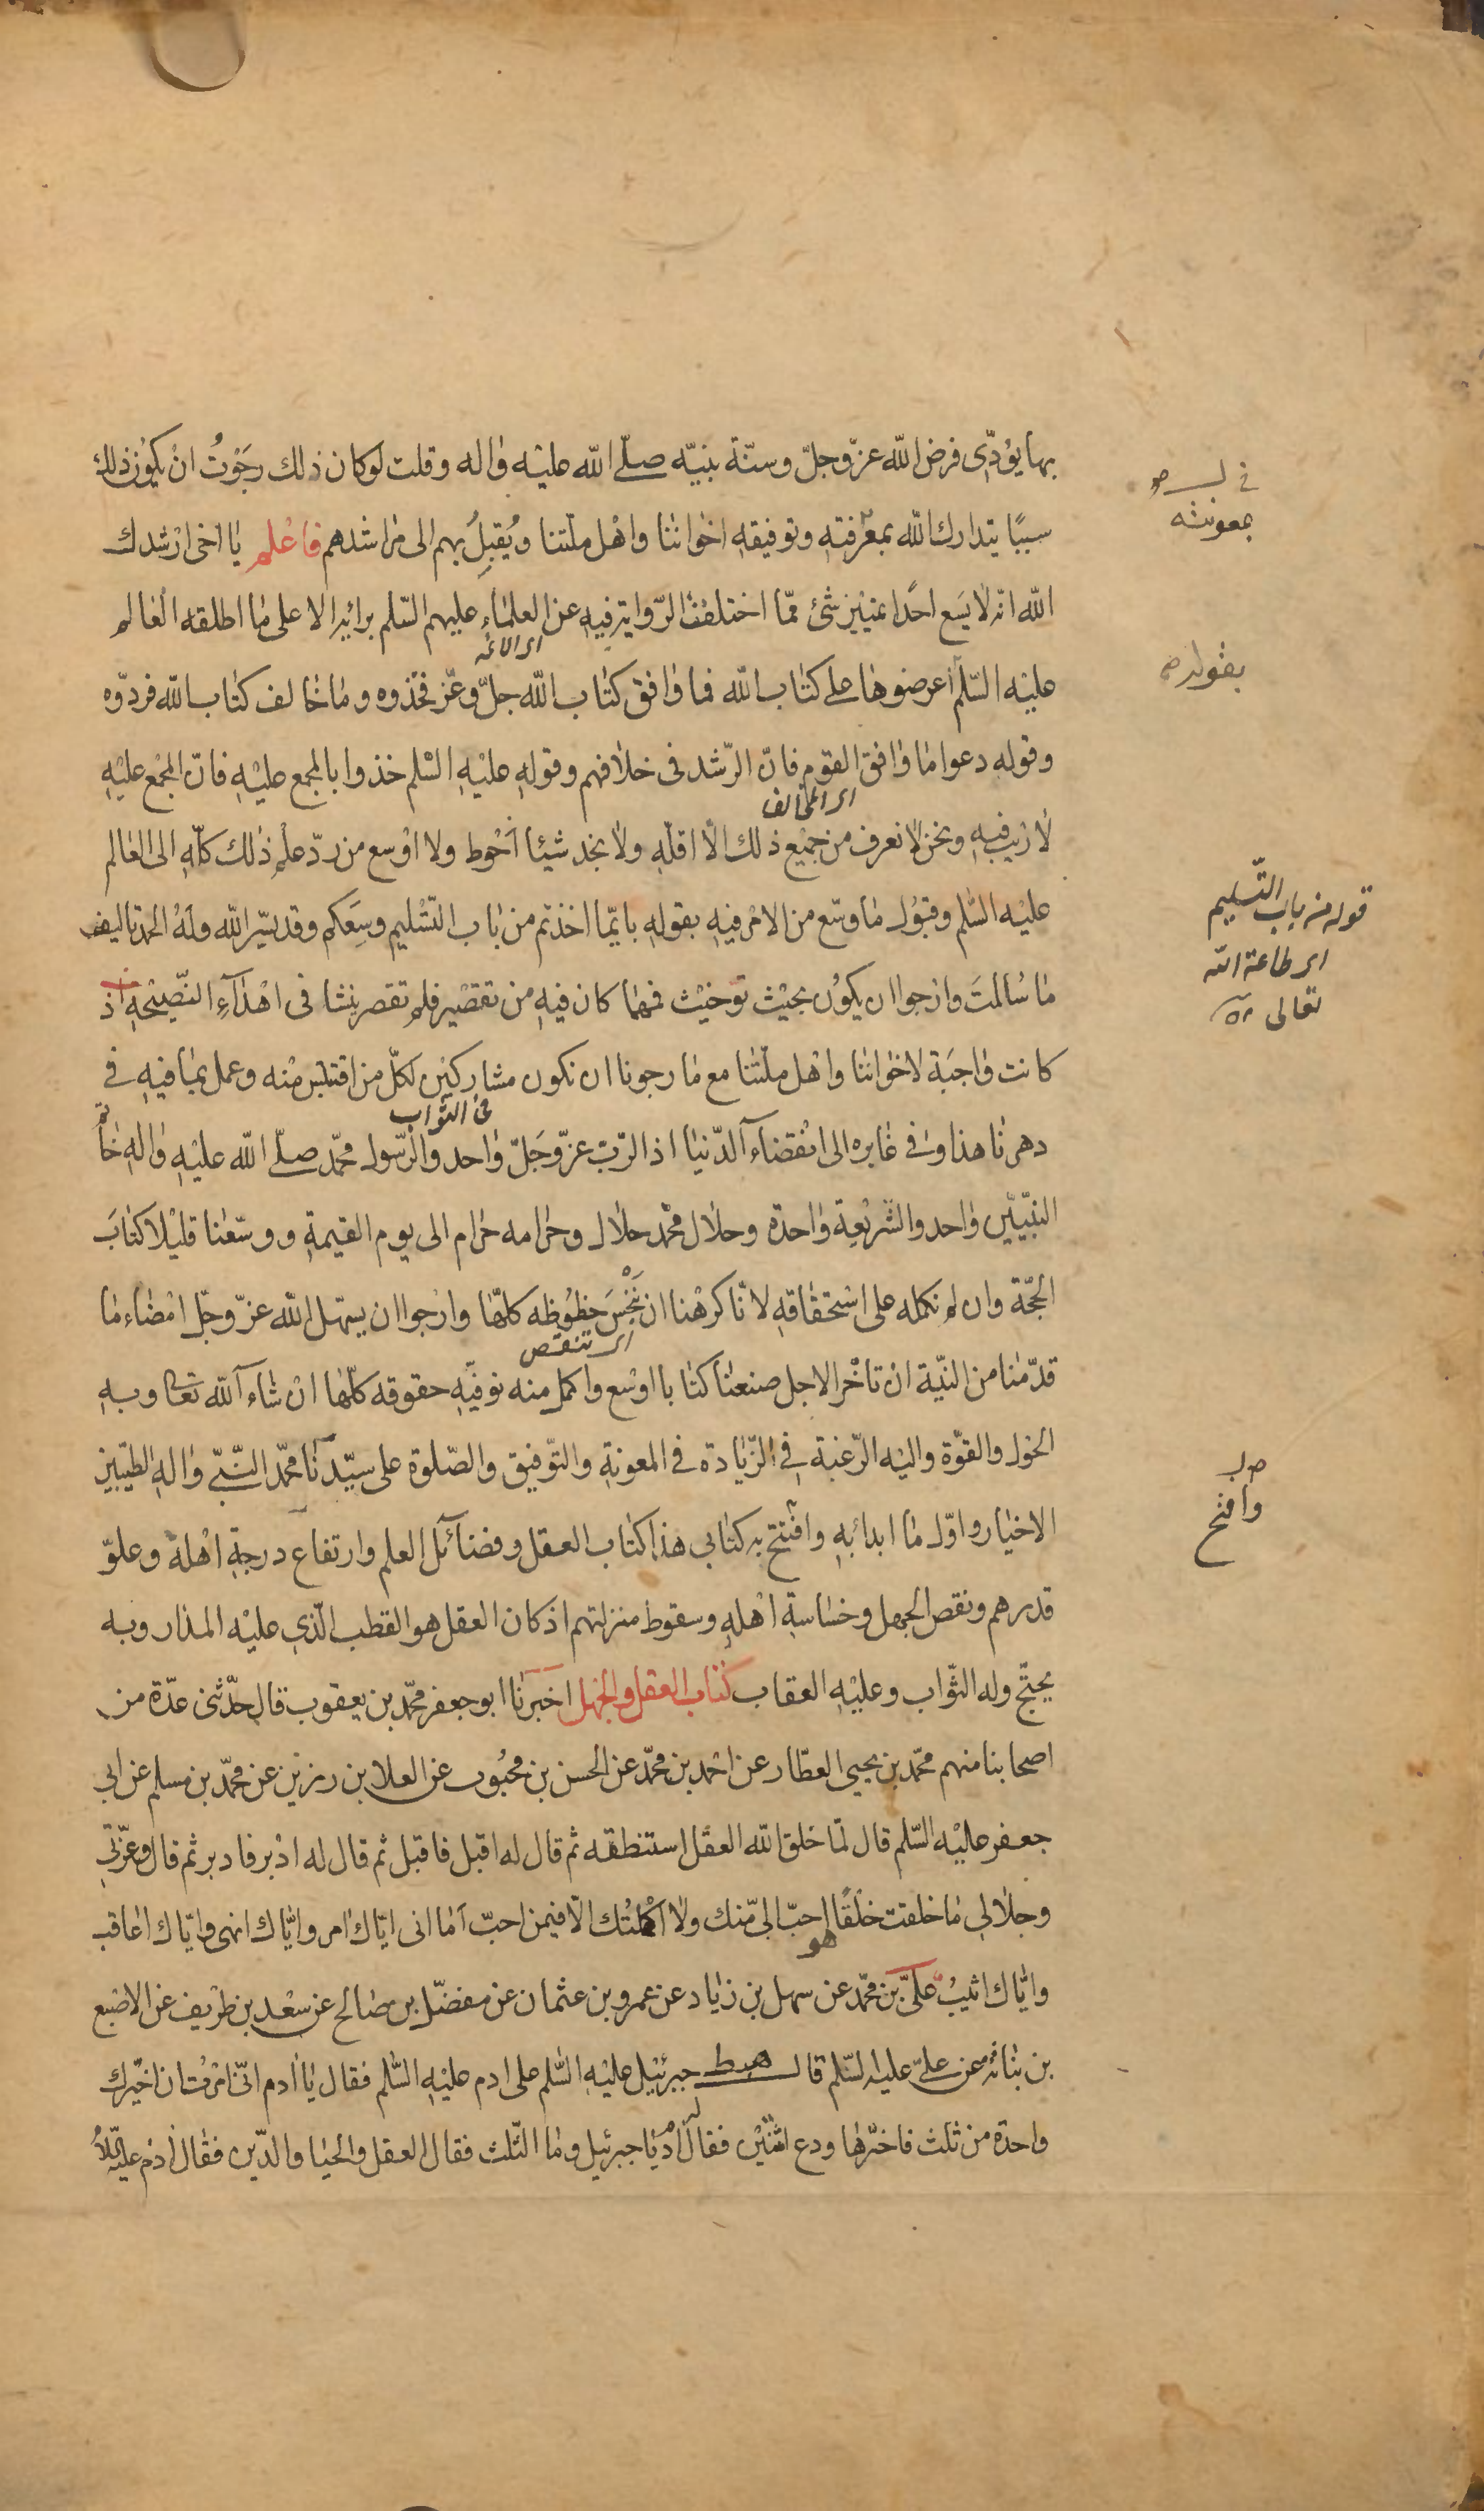 بها يؤدّى فرض الله عزّ وجلّ وسنّة نبيّه صلّى الله عليه واله وقلت لو كان ذلك رجوت ان يكون ذلك
سببًا يتدارك الله بمعرفته وتوفيقه اخواننا واهل ملّتنا ويُقبِلُ بهم الى مراشدهم فاعلم يا اخى ارشدك
الله انه لا يسع احدًا تمييز شئ ممّا اختلفت الرّواية فيه عن العلماء عليهم السّلم برائيه الا على ما اطلقه العالم
اى الائمة
عليه السّلم اعرضوها على كتاب الله فما وافق كتاب الله جلّ وعزّ فخذوه وما خالف كتاب الله فردّوه
وقوله دعوا ما وافق القوم فانّ الرّشد فى خلافهم وقوله عليه السّلم خذوا بالمجمع عليه فانّ المجمع عليه
اى المخالف
لا ريب فيه ونحن لا نعرف من جميع ذلك الّا اقلّه ولا نجد شيئا احوط ولا اوسع من ردّ علم ذلك كلّه الى العالم
عليه السّلم وقبول ما وسّع من الامر فيه بقوله بايّما اخذتم من باب التّسليم وسعكم وقد يسّر الله وله الحمد تاليف
ما سالت وارجوا ان يكون بحيث توخيت فمهما كان فيه من تقصير فلم تقصر نيتنا فى اهداء النّصيحة اذ
كانت واجبة لاخواننا واهل ملّتنا مع ما رجونا ان نكون مشاركين لكلّ من اقتبس منه وعمل بما فيه فى
فى الثواب
دهرنا هذا وفى غابره الى انقضاء الدّنيا اذ الرّب عزّ وجلّ واحد والرّسول محمّد صلّى الله عليه واله خاتم
النبيّين واحد والشّريعة واحدة وحلال محمّد حلال وحرامه حرام الى يوم القيمة ووسّعنا قليلا كتاب
الحجّة وان لم نكمله على استحقاقه لانّا كرهنا ان نَبْخَسَ حظوظه كلّها وارجوا ان يسهّل الله عزّ وجلّ امضاء ما
اى تنقص
قدّمنا من النيّة ان تاخّر الاجل صنعنا كتابا اوسع واكمل منه نوفّيه حقوقه كلّها ان شاء الله تعالى وبه
الحول والقوّة واليه الرّغبة فى الزّيادة فى المعونة والتّوفيق والصّلوة على سيّدنا محمّد النّبىّ واله الطّيّبين
الاخيار واوّل ما ابدا به وافتتح به كتابى هذا كتاب العقل وفضائل العلم وارتفاع درجة اهله وعلوّ
قدرهم ونقص الجهل وخساسة اهله وسقوط منزلتهم اذ كان العقل هو القطب الّذى عليه المدار وبه
يحتجّ وله الثّواب وعليه العقاب كتاب العقل والجهل اخبرنا ابو جعفر محمّد بن يعقوب قال حدّثنى عدّة من
اصحابنا منهم محمّد بن يحيى العطّار عن احمد بن محمّد عن الحسن بن محبوب عن العلا بن رزين عن محمّد بن مسلم عن ابى
جعفر عليه السّلم قال لمّا خلق الله العقل استنطقه ثم قال له اقبل فاقبل ثم قال له ادبر فادبر ثم قال وعزّتى
وجلالى ما خلقت خلقًا هو احبّ الىّ منك ولا اكملتك الّا فيمن احبّ اما انى ايّاك امر وايّاك انهى وايّاك اعاقب
وايّاك اثيب علىّ بن محمّد عن سهل بن زياد عن عمرو بن عثمان عن مفضّل بن صالح عن سعد بن طريف عن الاصبغ
بن نباته عن علىّ عليه السّلم قال هبط جبرئيل عليه السّلم على ادم عليه السّلم فقال يا ادم انّى امرت ان اخيّرك
واحدة من ثلث فاخترها ودع اثنتين فقال له ادم يا جبرئيل وما الثّلث فقال العقل والحيا والدّين فقال ادم عليه السّلام
بمعونته
بقوله
قوله من باب التّسليم
اى طاعة الله
تعالى
وافتح